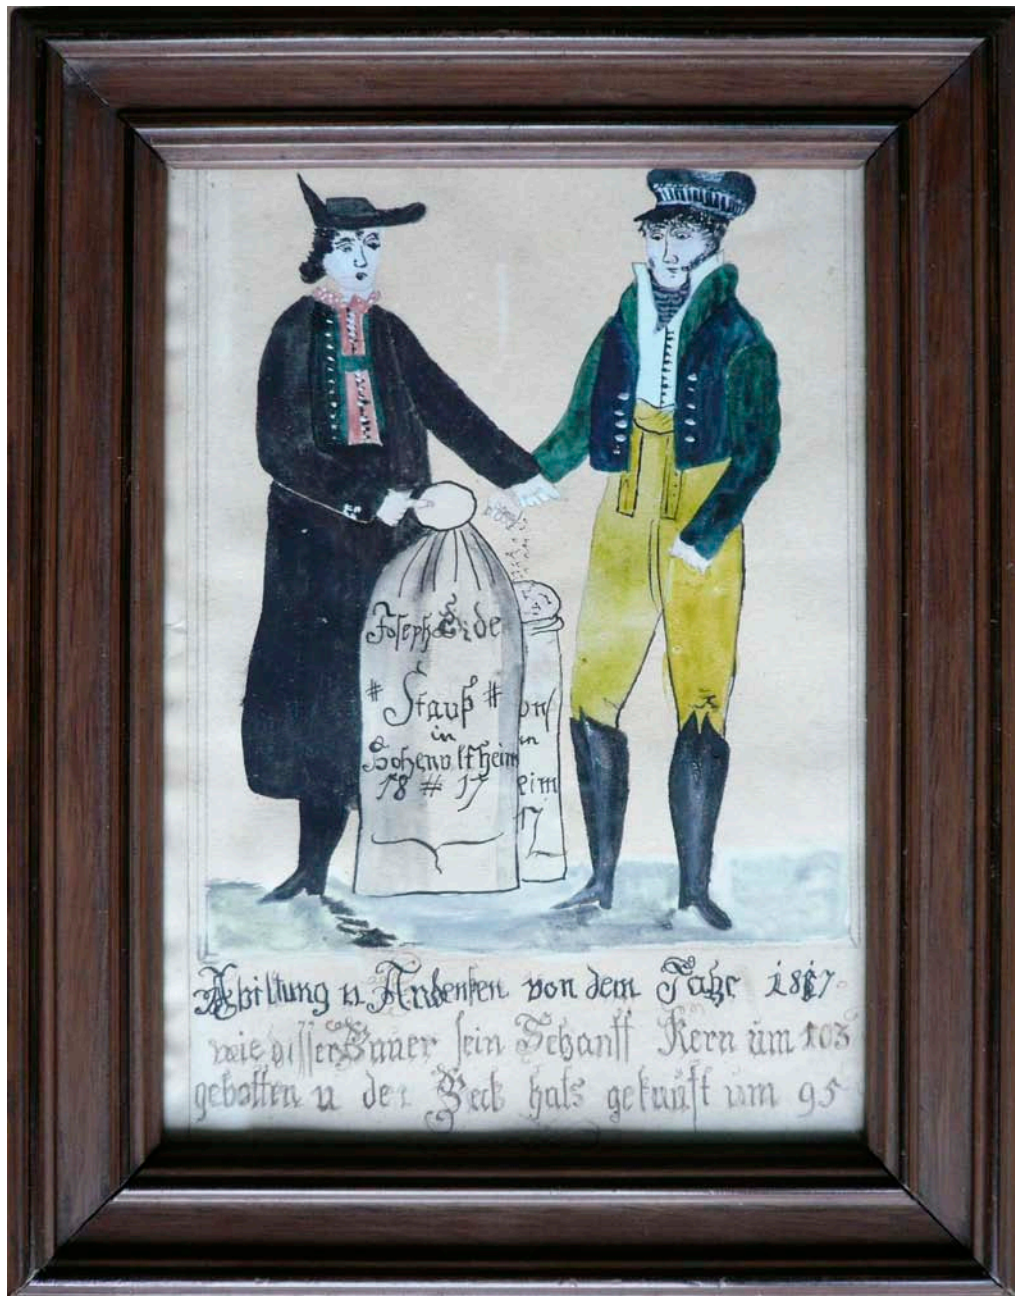 Joseph Erde
# Stauß #
in
Hohenvltheim
18 # 17
on
in
eim
17
Abiltung u Andenken von dem Jahr 1817
wie disser Bauer sein Schanff Kern um 103
gebotten u der Beck hats gekauft um 95